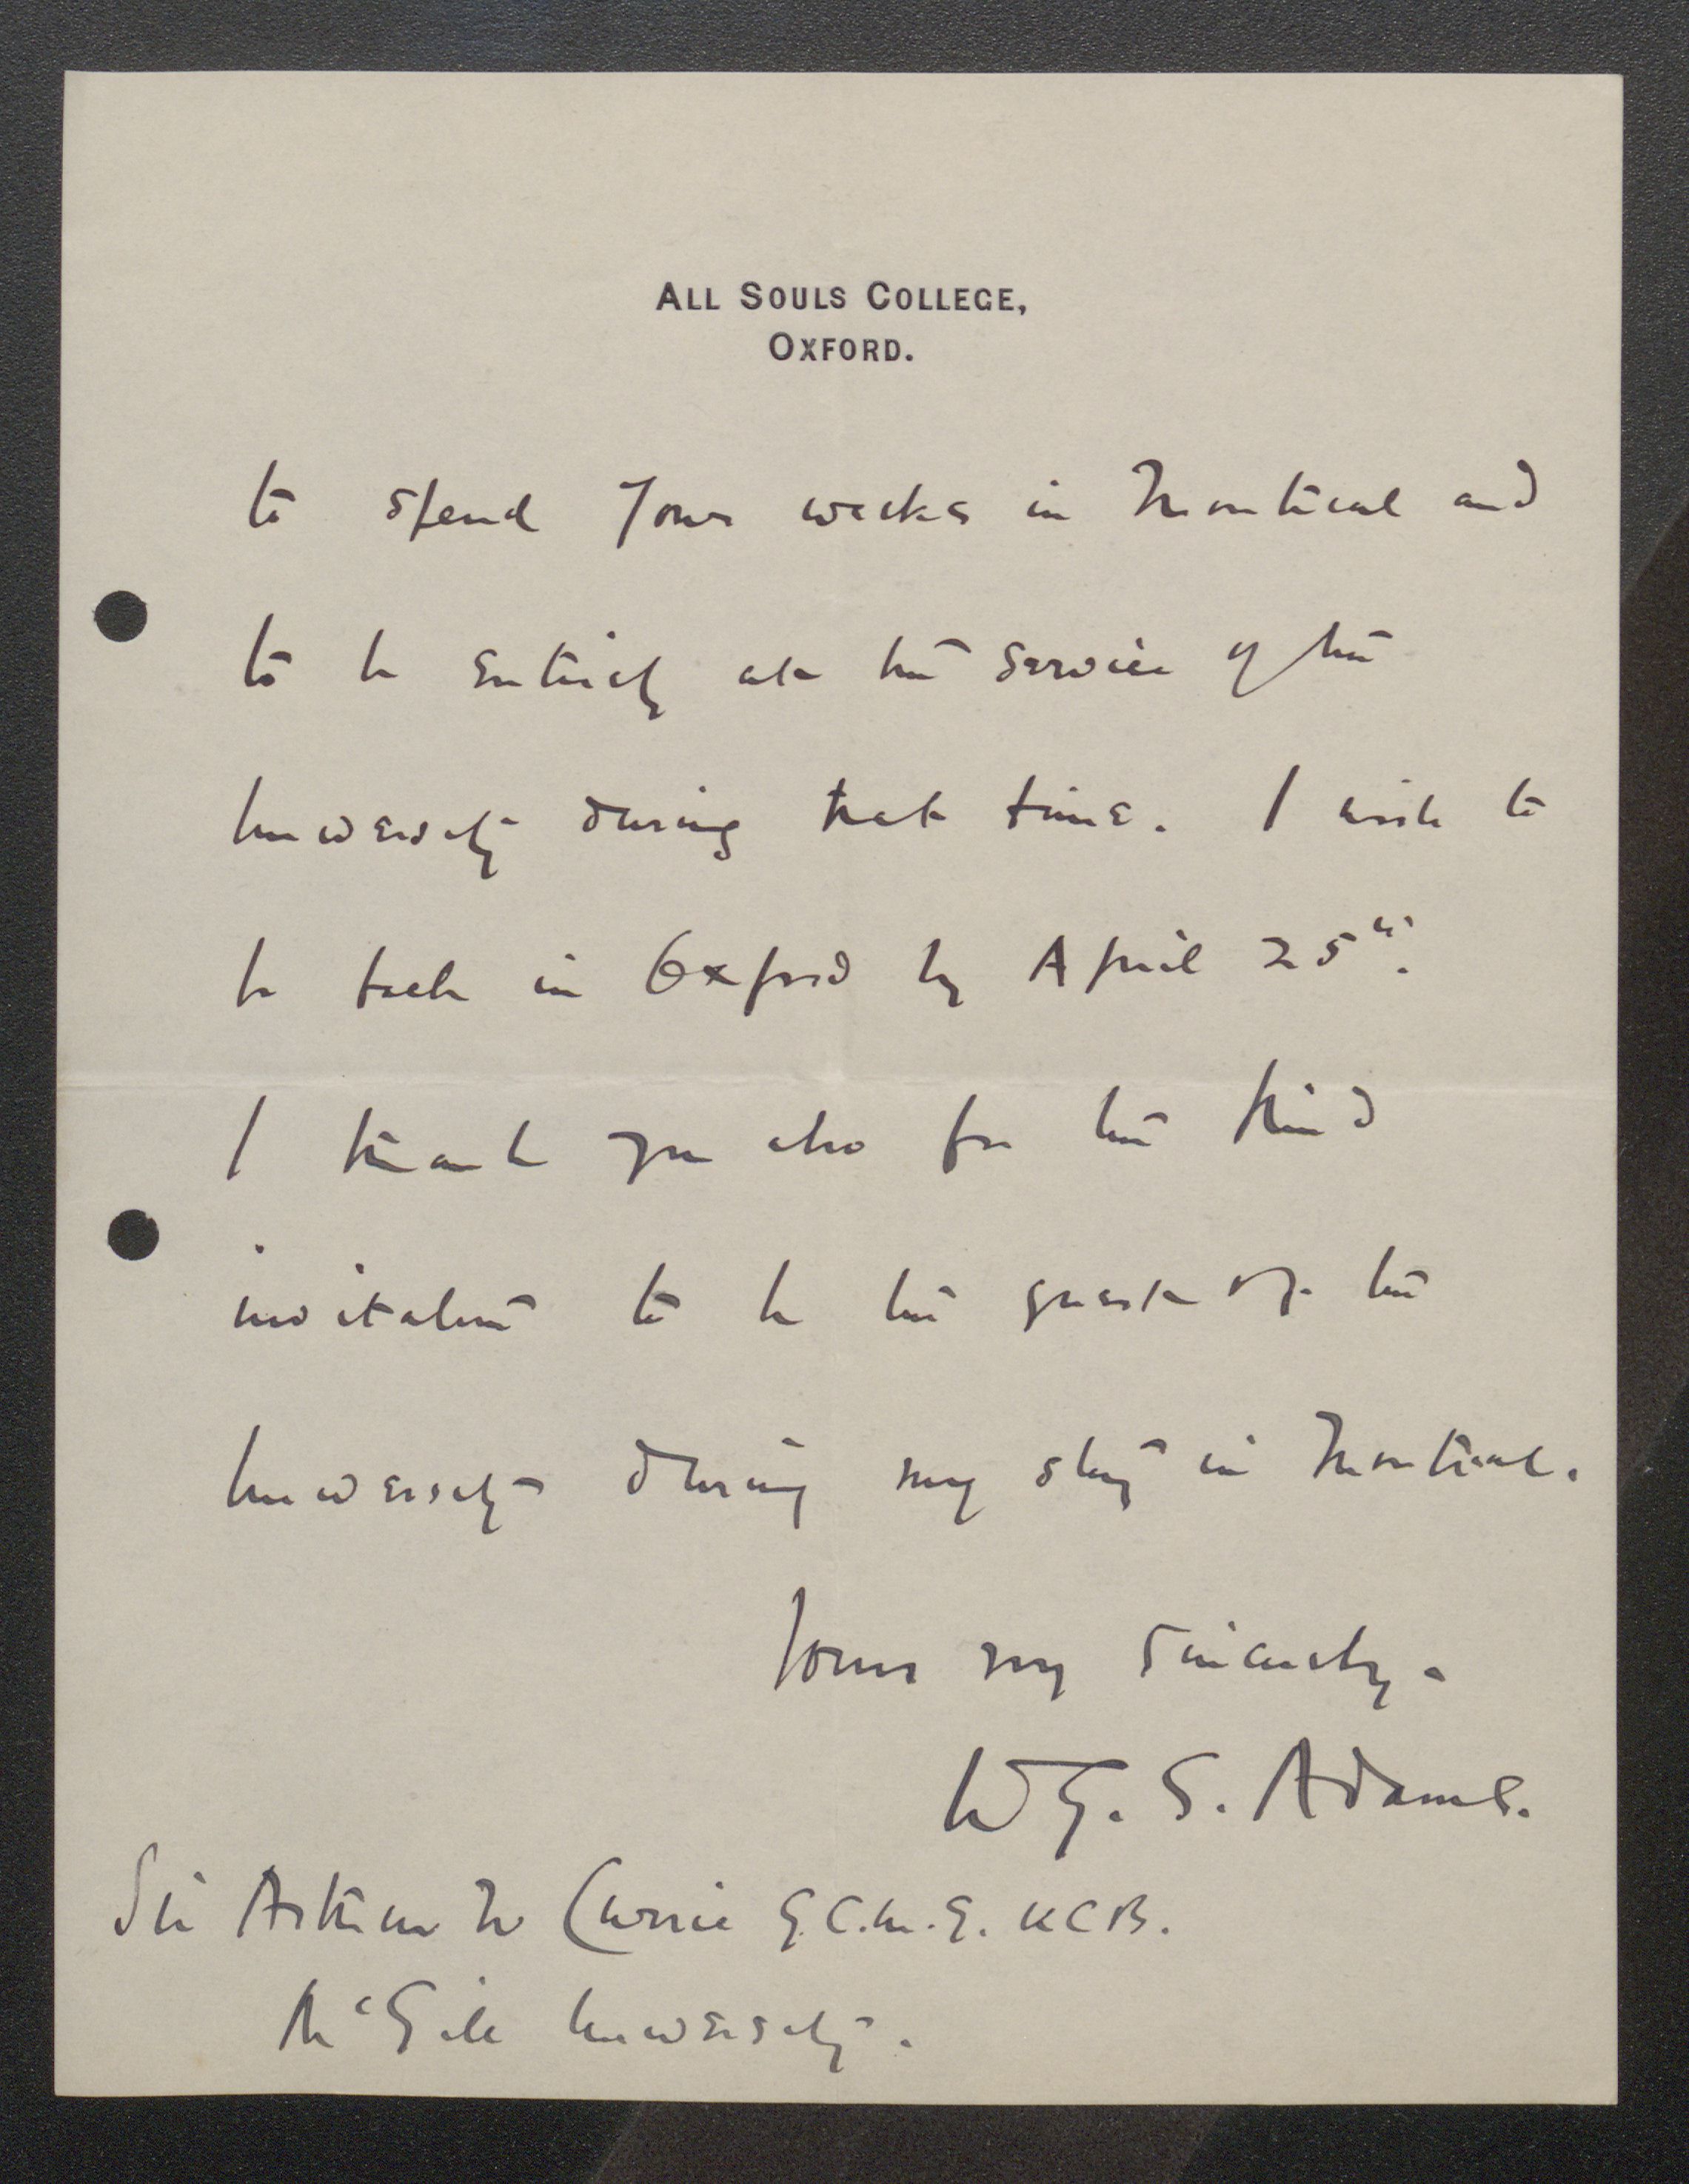 ALL SOULS COLLEGE,
OXFORD.
to spend four weeks in Montreal and
to be entirely at the service of the
University during that time. I wish to
be back in Oxford by April 25th.
I thank you also for the kind
invitation to be the guest of the
University during my stay in Montreal.
Yours very sincerely.
W G. S. Adams.
Sir Arthur W Currie G.C.M.G. KCB.
McGill University.